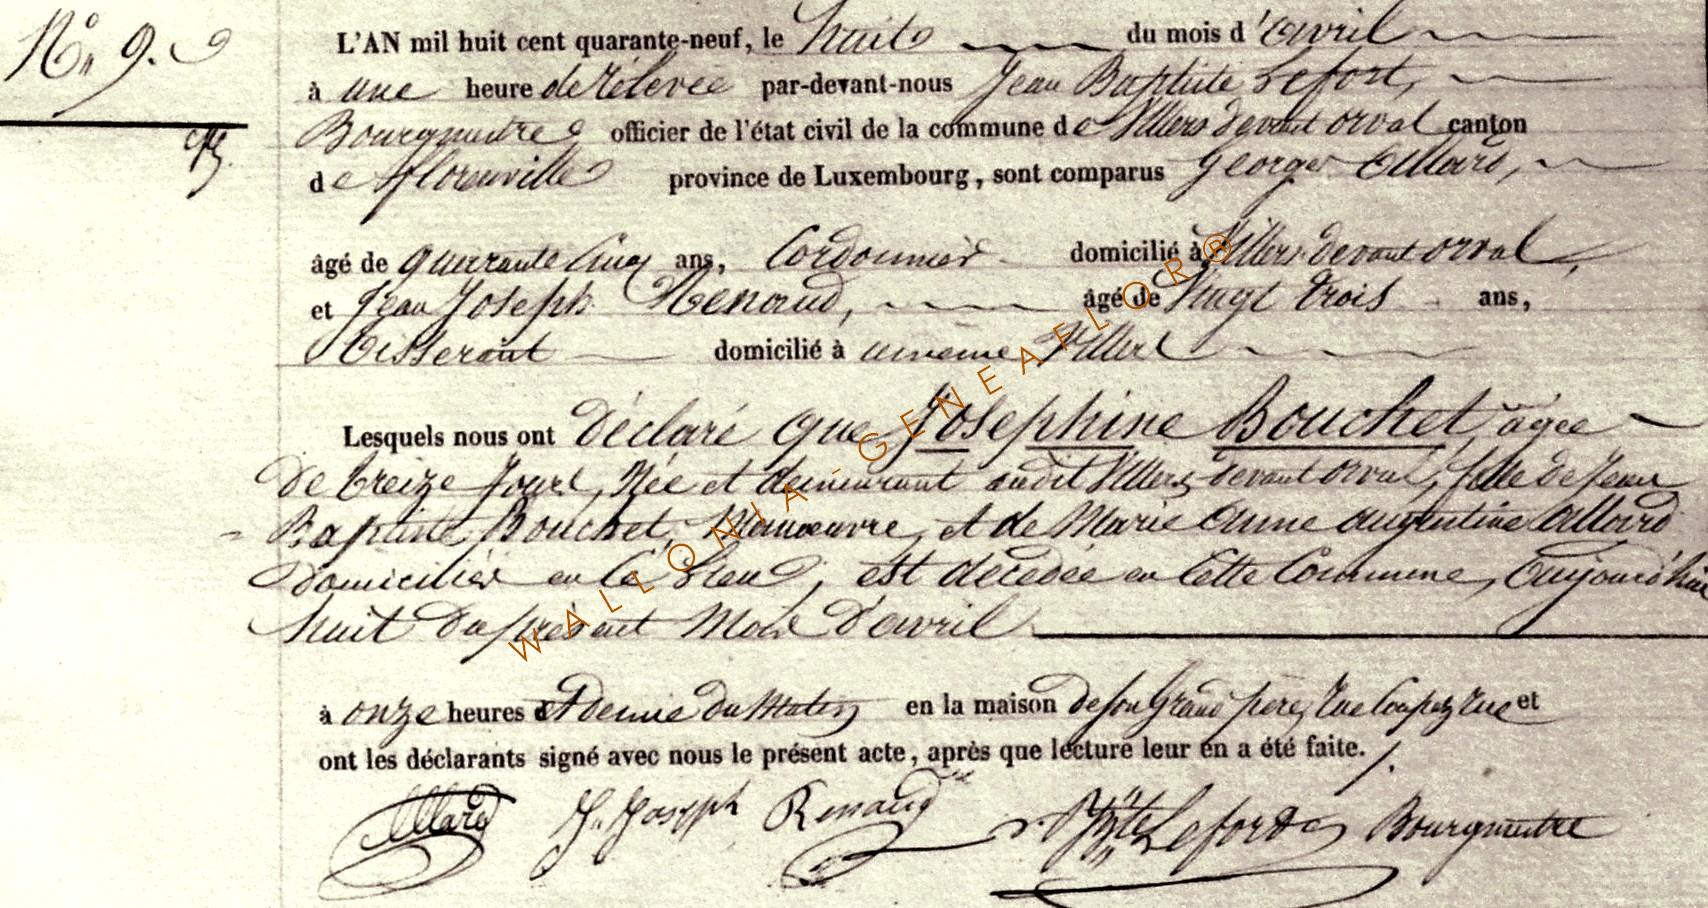 N° 9.
L'AN mil huit cent quarante-neuf, le huit du mois d'avril
à une heure de rélevée par-devant-nous Jean Baptiste Lefort,
Bourgmestre officier de l'état civil de la commune de Villers devant orval canton
de florenville province de Luxembourg, sont comparus George Allard,
âgé de quarante Cinq ans, Cordonnier domicilié à Villers devant orval,
et Jean Joseph Renaud, âgé de Vingt trois ans,
Tisserant domicilié à même Villers
Lesquels nous ont déclaré que Josephine Bouchet âgée
de treize jours, Née et demeurant audit Villers devant orval, fille de Jean
Baptiste Bouchet, Manœuvre, et de Marie anne augustine allard
domiciliés en Ce Lieu, est décédée en Cette Commune, aujourd'hui
huit du présent Mois d'avril
à onze heures et demie du Matin en la maison de son Grand père, rue Coupez rue et
ont les déclarants signé avec nous le présent acte, après que lecture leur en a été faite.
Allard J. Joseph Renaud J Bte Lefort Bourgmestre
WALLONIA-GENEAFLOR®